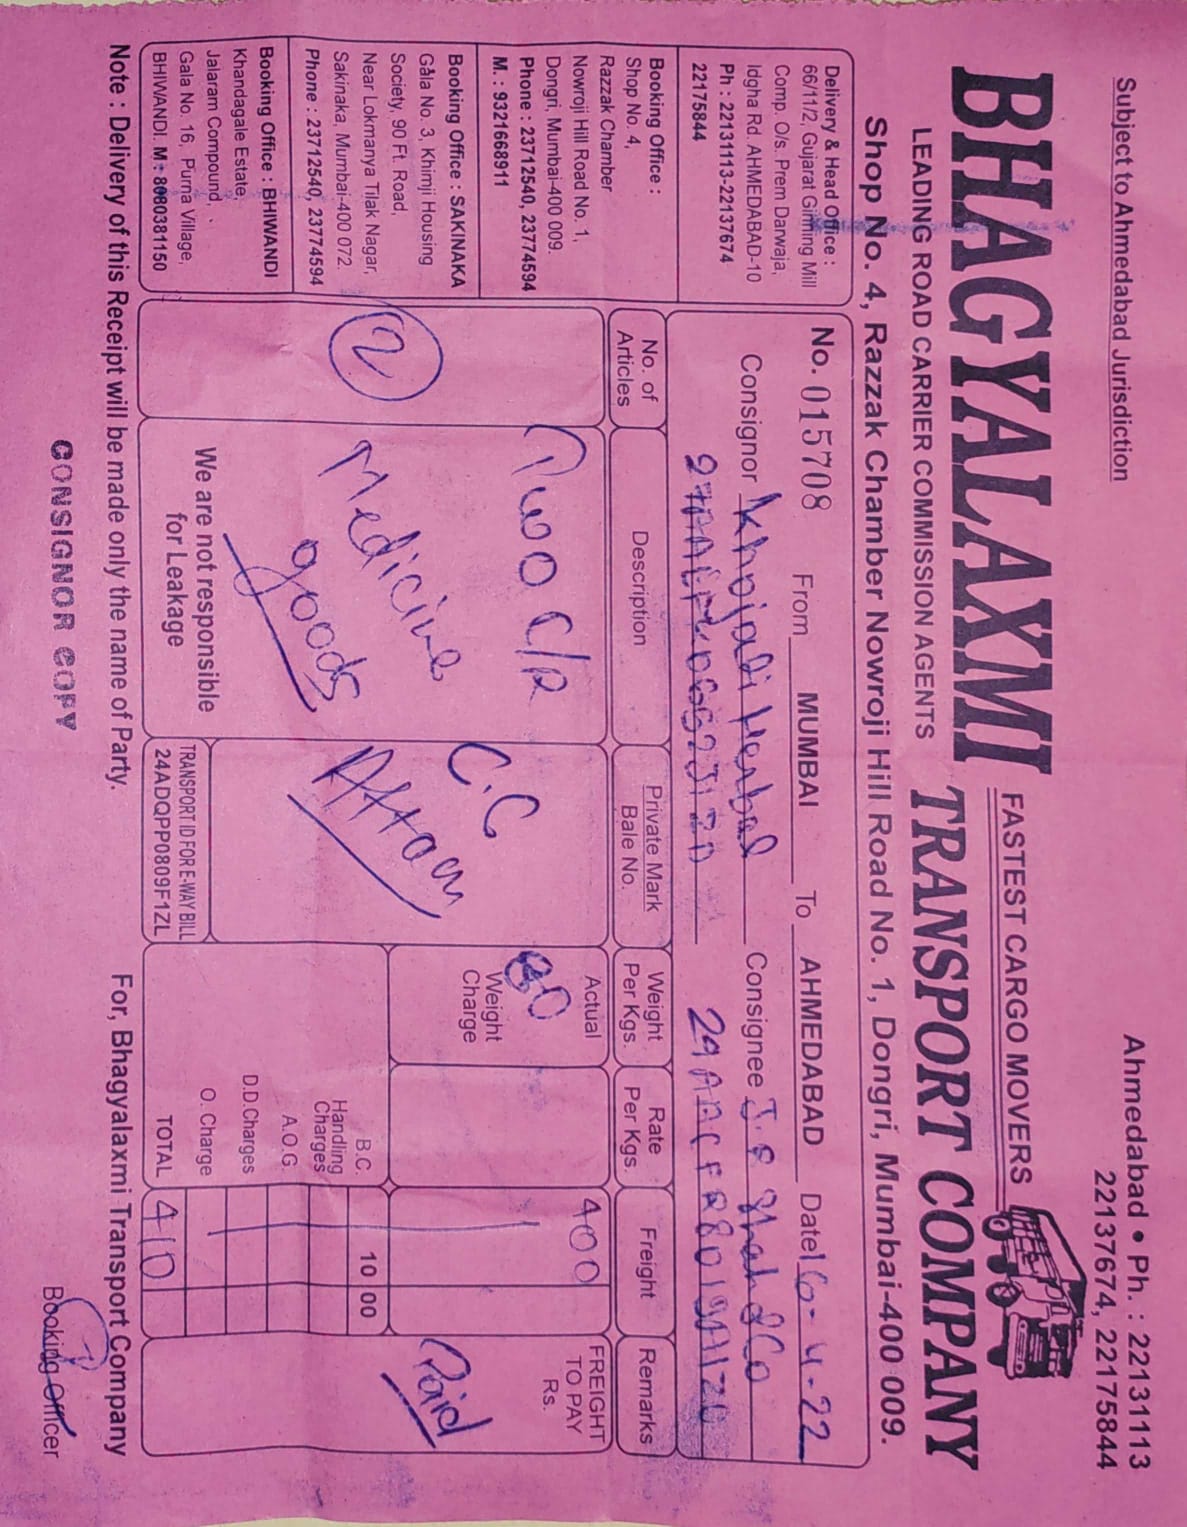 Subject to Ahmedabad Jurisdiction
Ahmedabad • Ph. : 22131113
22137674, 22175844
BHAGYALAXMI
FASTEST CARGO MOVERS
LEADING ROAD CARRIER COMMISSION AGENTS
TRANSPORT COMPANY
Shop No. 4, Razzak Chamber Nowroji Hill Road No. 1, Dongri, Mumbai-400 009.
Delivery & Head Office :
66/11/2, Gujarat Ginning Mill
Comp. O/s. Prem Darwaja,
Idgha Rd. AHMEDABAD-10
Ph : 22131113-22137674
22175844
Booking Office :
Shop No. 4,
Razzak Chamber
Nowroji Hill Road No. 1,
Dongri, Mumbai-400 009.
Phone : 23712540, 23774594
M. : 9321668911
Booking Office : SAKINAKA
Gala No. 3, Khimji Housing
Society, 90 Ft. Road,
Near Lokmanya Tilak Nagar,
Sakinaka, Mumbai-400 072.
Phone : 23712540, 23774594
Booking Office : BHIWANDI
Khandagale Estate,
Jalaram Compound,
Gala No. 16, Purna Village,
BHIWANDI. M : 8080381150
No. 015708 From MUMBAI To AHMEDABAD Date 16-4-22
Consignor Khojati Herbal Consignee J.P Shah & Co
No. of Articles
Description
Private Mark
Bale No.
Weight Per Kgs.
Rate Per Kgs.
Freight
Remarks
2
Two C/R
Medicine
goods
C.C
Attam
Actual
80
Weight Charge
400
FREIGHT TO PAY Rs.
Paid
B.C. 10 00
Handling Charges
A.O.G.
D.D.Charges
O. Charge
TOTAL 410
We are not responsible
for Leakage
TRANSPORT ID FOR E-WAY BILL
24ADQPP0809F1ZL
Note : Delivery of this Receipt will be made only the name of Party.
For, Bhagyalaxmi Transport Company
CONSIGNOR COPY
Booking Officer